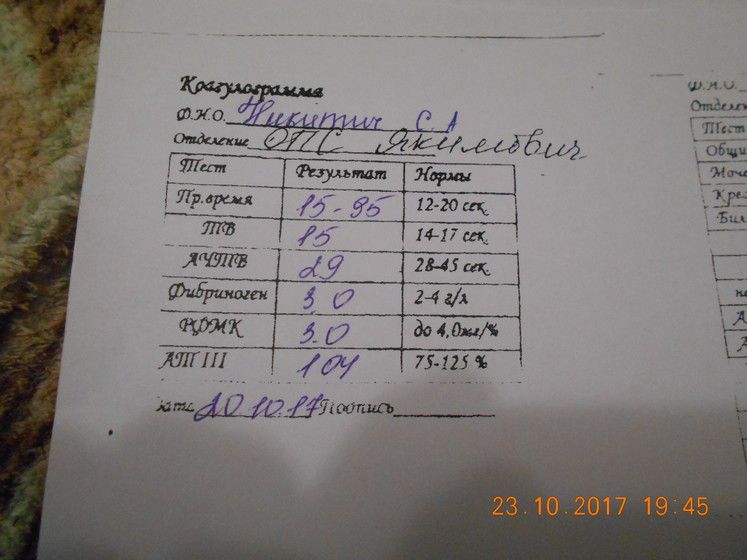 Коагулограмма
Ф.И.О. Никитич С А
Отделение ОПС Якимович
Тест Результат Нормы
Пр.время 15-95 12-20 сек.
ТВ 15 14-17 сек.
АЧТВ 29 28-45 сек.
Фибриноген 3.0 2-4 г/л
РФМК 3.0 до 4,0мг/%
АТ III 104 75-125 %
дата 20.10.17 Подпись
Ф.И.О.
Отделен
Тест
Общи
Моче
Кре
Бил
23.10.2017 19:45